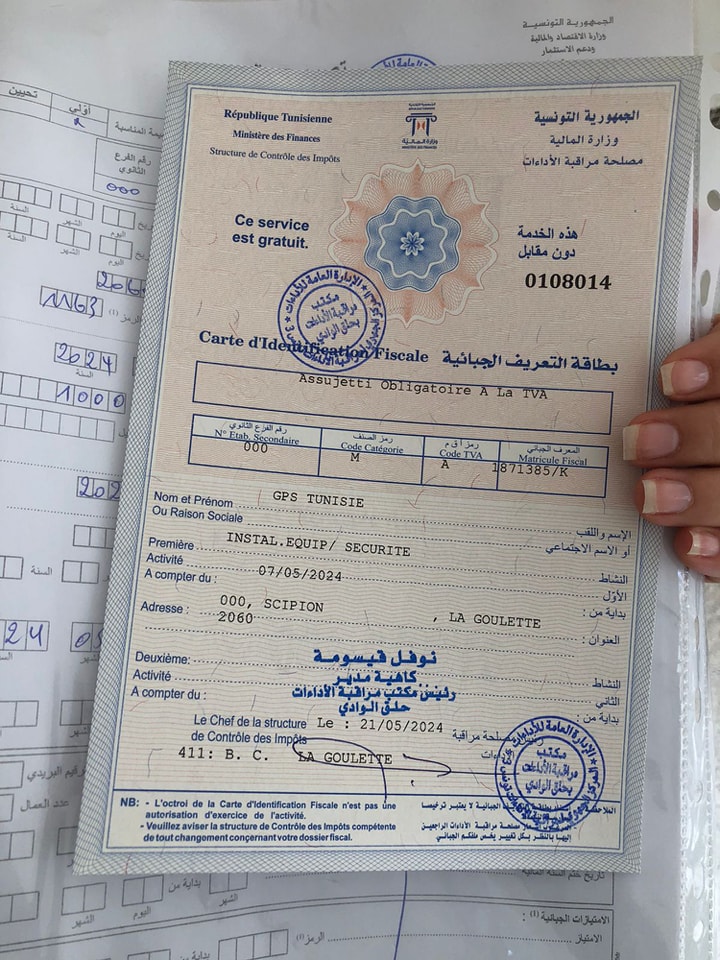 الجمهورية التونسية
وزارة الاقتصاد والمالية
ودعم الاستثمار
تحيين
أولي
رقم الفرع
الثانوي
000
السنة
الشهر
اليوم
1163
الرمز (1)
2024
السنة
1000
République Tunisienne
Ministère des Finances
Structure de Contrôle des Impôts
الجمهورية التونسية
وزارة المالية
مصلحة مراقبة الأداءات
وزارة المالية
Ce service
est gratuit.
هذه الخدمة
دون مقابل
0108014
الإدارة العامة للأداءات
مكتب
مراقبة الأداءات
بحلق الوادي
Carte d'Identification Fiscale بطاقة التعريف الجبائية
Assujetti Obligatoire A La TVA
رقم الفرع الثانوي رمز الصنف رمز أ ق م المعرف الجبائي
N° Etab. Secondaire Code Catégorie Code TVA Matricule Fiscal
000 M A 1871385/K
Nom et Prénom GPS TUNISIE الإسم واللقب
Ou Raison Sociale أو الاسم الاجتماعي
Première INSTAL.EQUIP/ SECURITE النشاط
Activité الأوّل
A compter du : 07/05/2024 بداية من :
Adresse : 000, SCIPION , LA GOULETTE العنوان :
2060
Deuxième: نوفل قيسومة النشاط
Activité كاهية مدير الثاني
A compter du : رئيس مكتب مراقبة الأداءات بداية من :
حلق الوادي
Le Chef de la structure Le : 21/05/2024 مصلحة مراقبة
de Contrôle des Impôts
411: B. C. LA GOULETTE
الإدارة العامة للأداءات
مكتب
مراقبة الأداءات
بحلق الوادي
NB: - L'octroi de la Carte d'Identification Fiscale n'est pas une
autorisation d'exercice de l'activité.
- Veuillez aviser la structure de Contrôle des Impôts compétente
de tout changement concernant votre dossier fiscal.
الجبائية لا يعتبر ترخيصا
مصلحة مراقبة الأداءات الراجعين
إليها بالنظر بكل تغيير يخص ملفكم الجبائي
عدد العمال
بداية من
اليوم
الشهر
الامتيازات الجبائية (1) :
الامتياز
الرمز(1)
بداية من